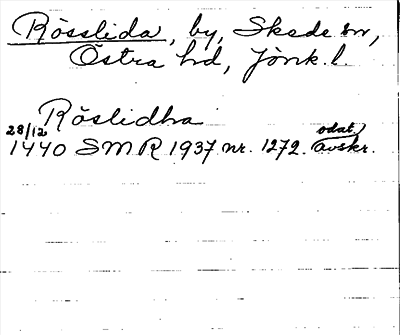 Rösslida, by, Skede sn,
Östra hd, Jönk. l.
Röslidha
28/12 1440 SMR 1937 nr. 1272. odat. avskr.